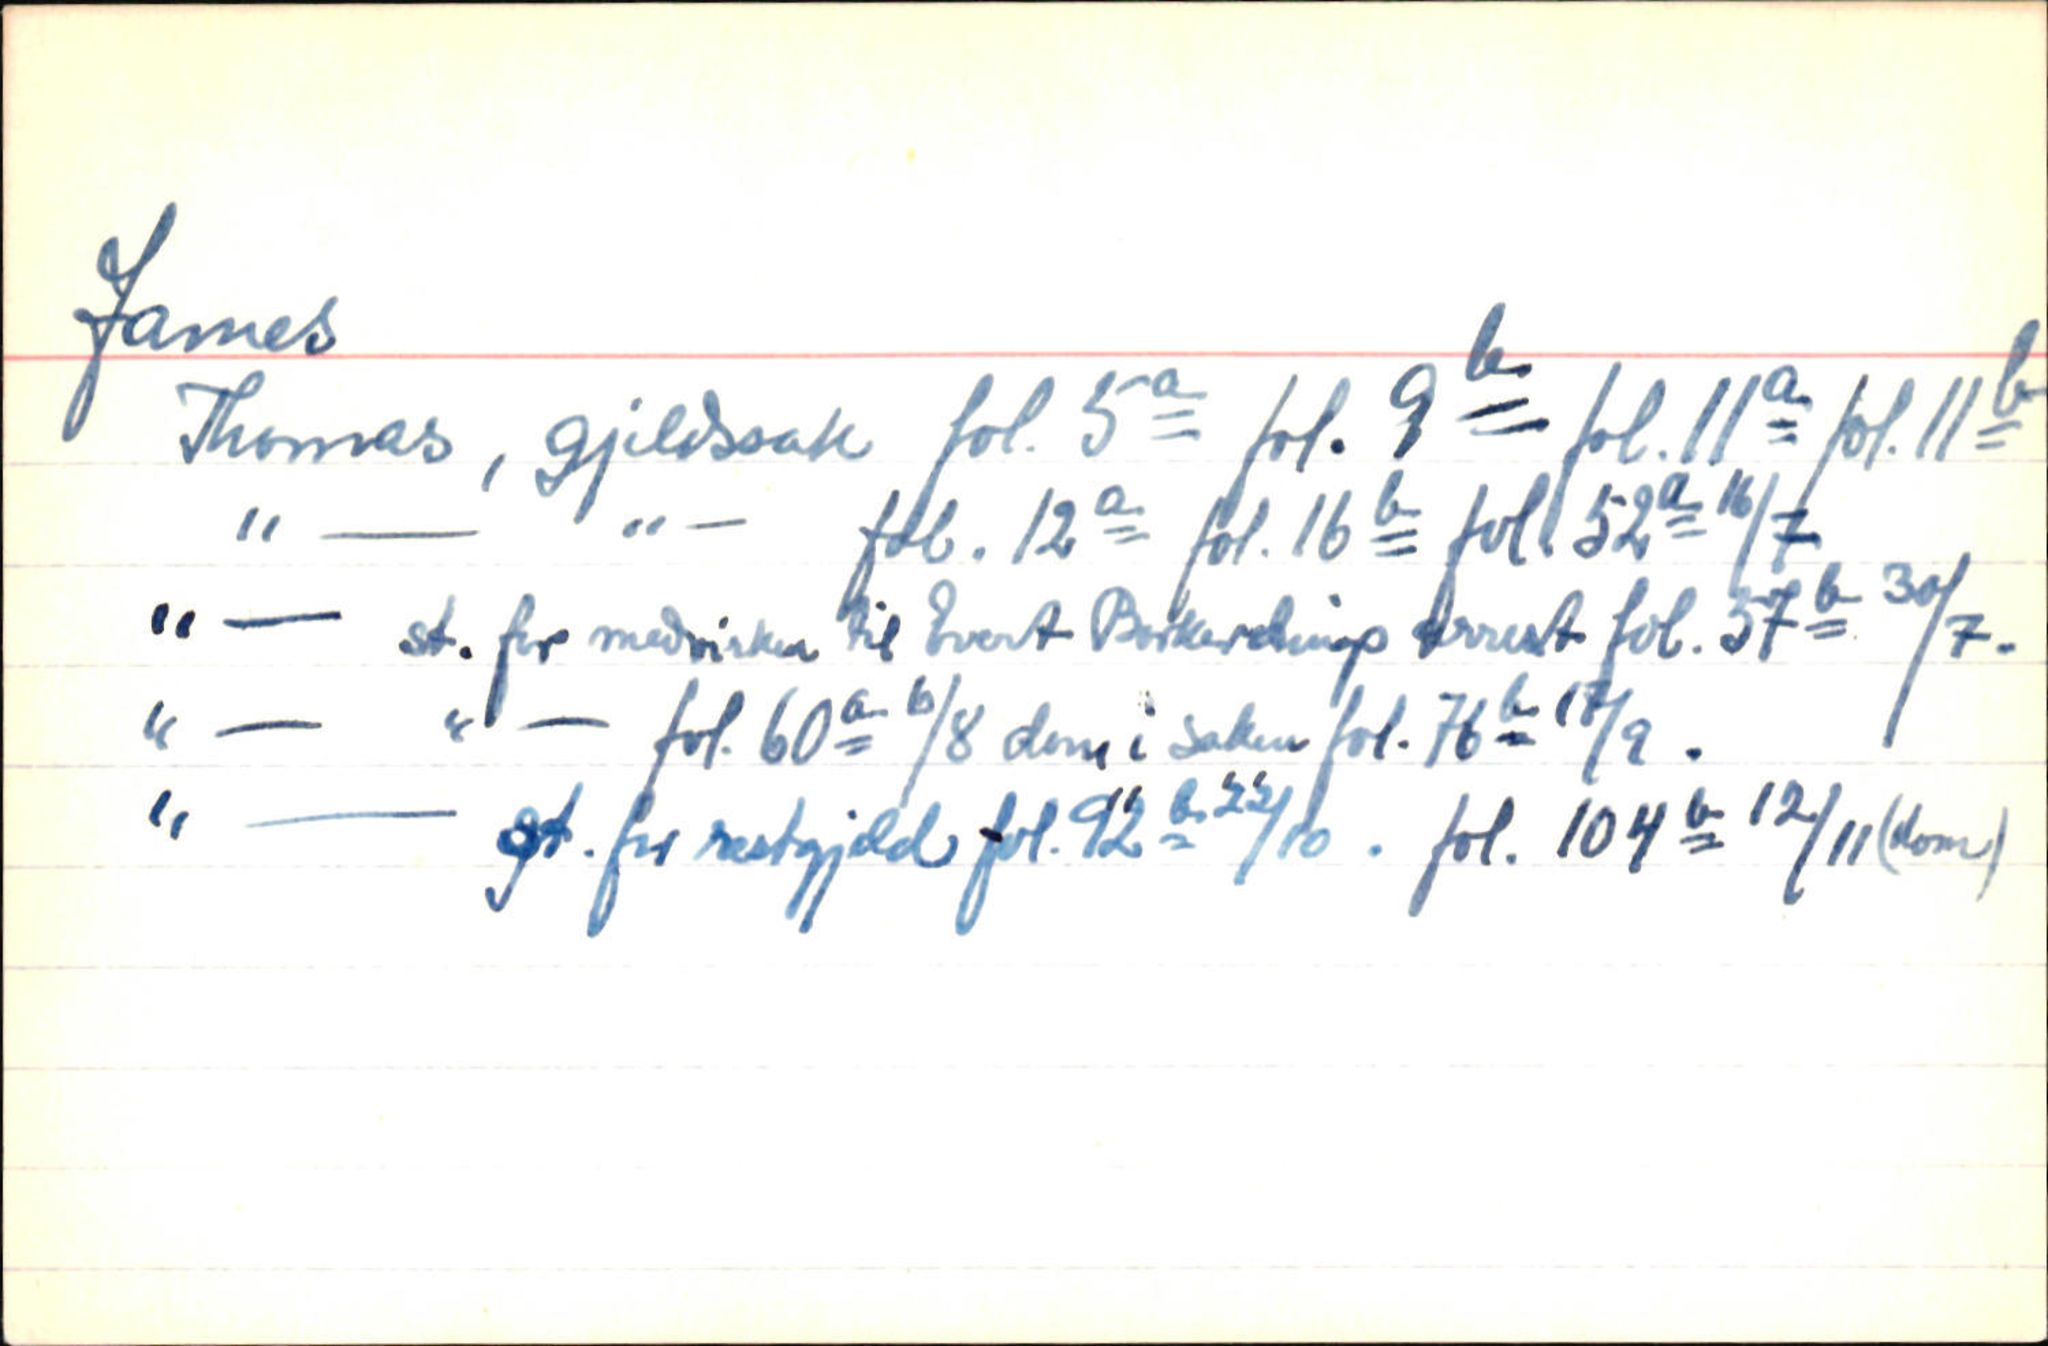 James
Thomas, gjeldssak fol. 5a fol. 9b fol. 11a fol. 11b
" — " — fol. 12a fol. 16b fol. 52a 16/7
" — st. for medvirken til Evert arrest fol. 57b 30/7.
" — " — fol. 60a 6/8 dom i saken fol. 76b 17/9.
" — st. for restgjeld fol. 92b 22/10. fol. 104b 12/11 (dom)